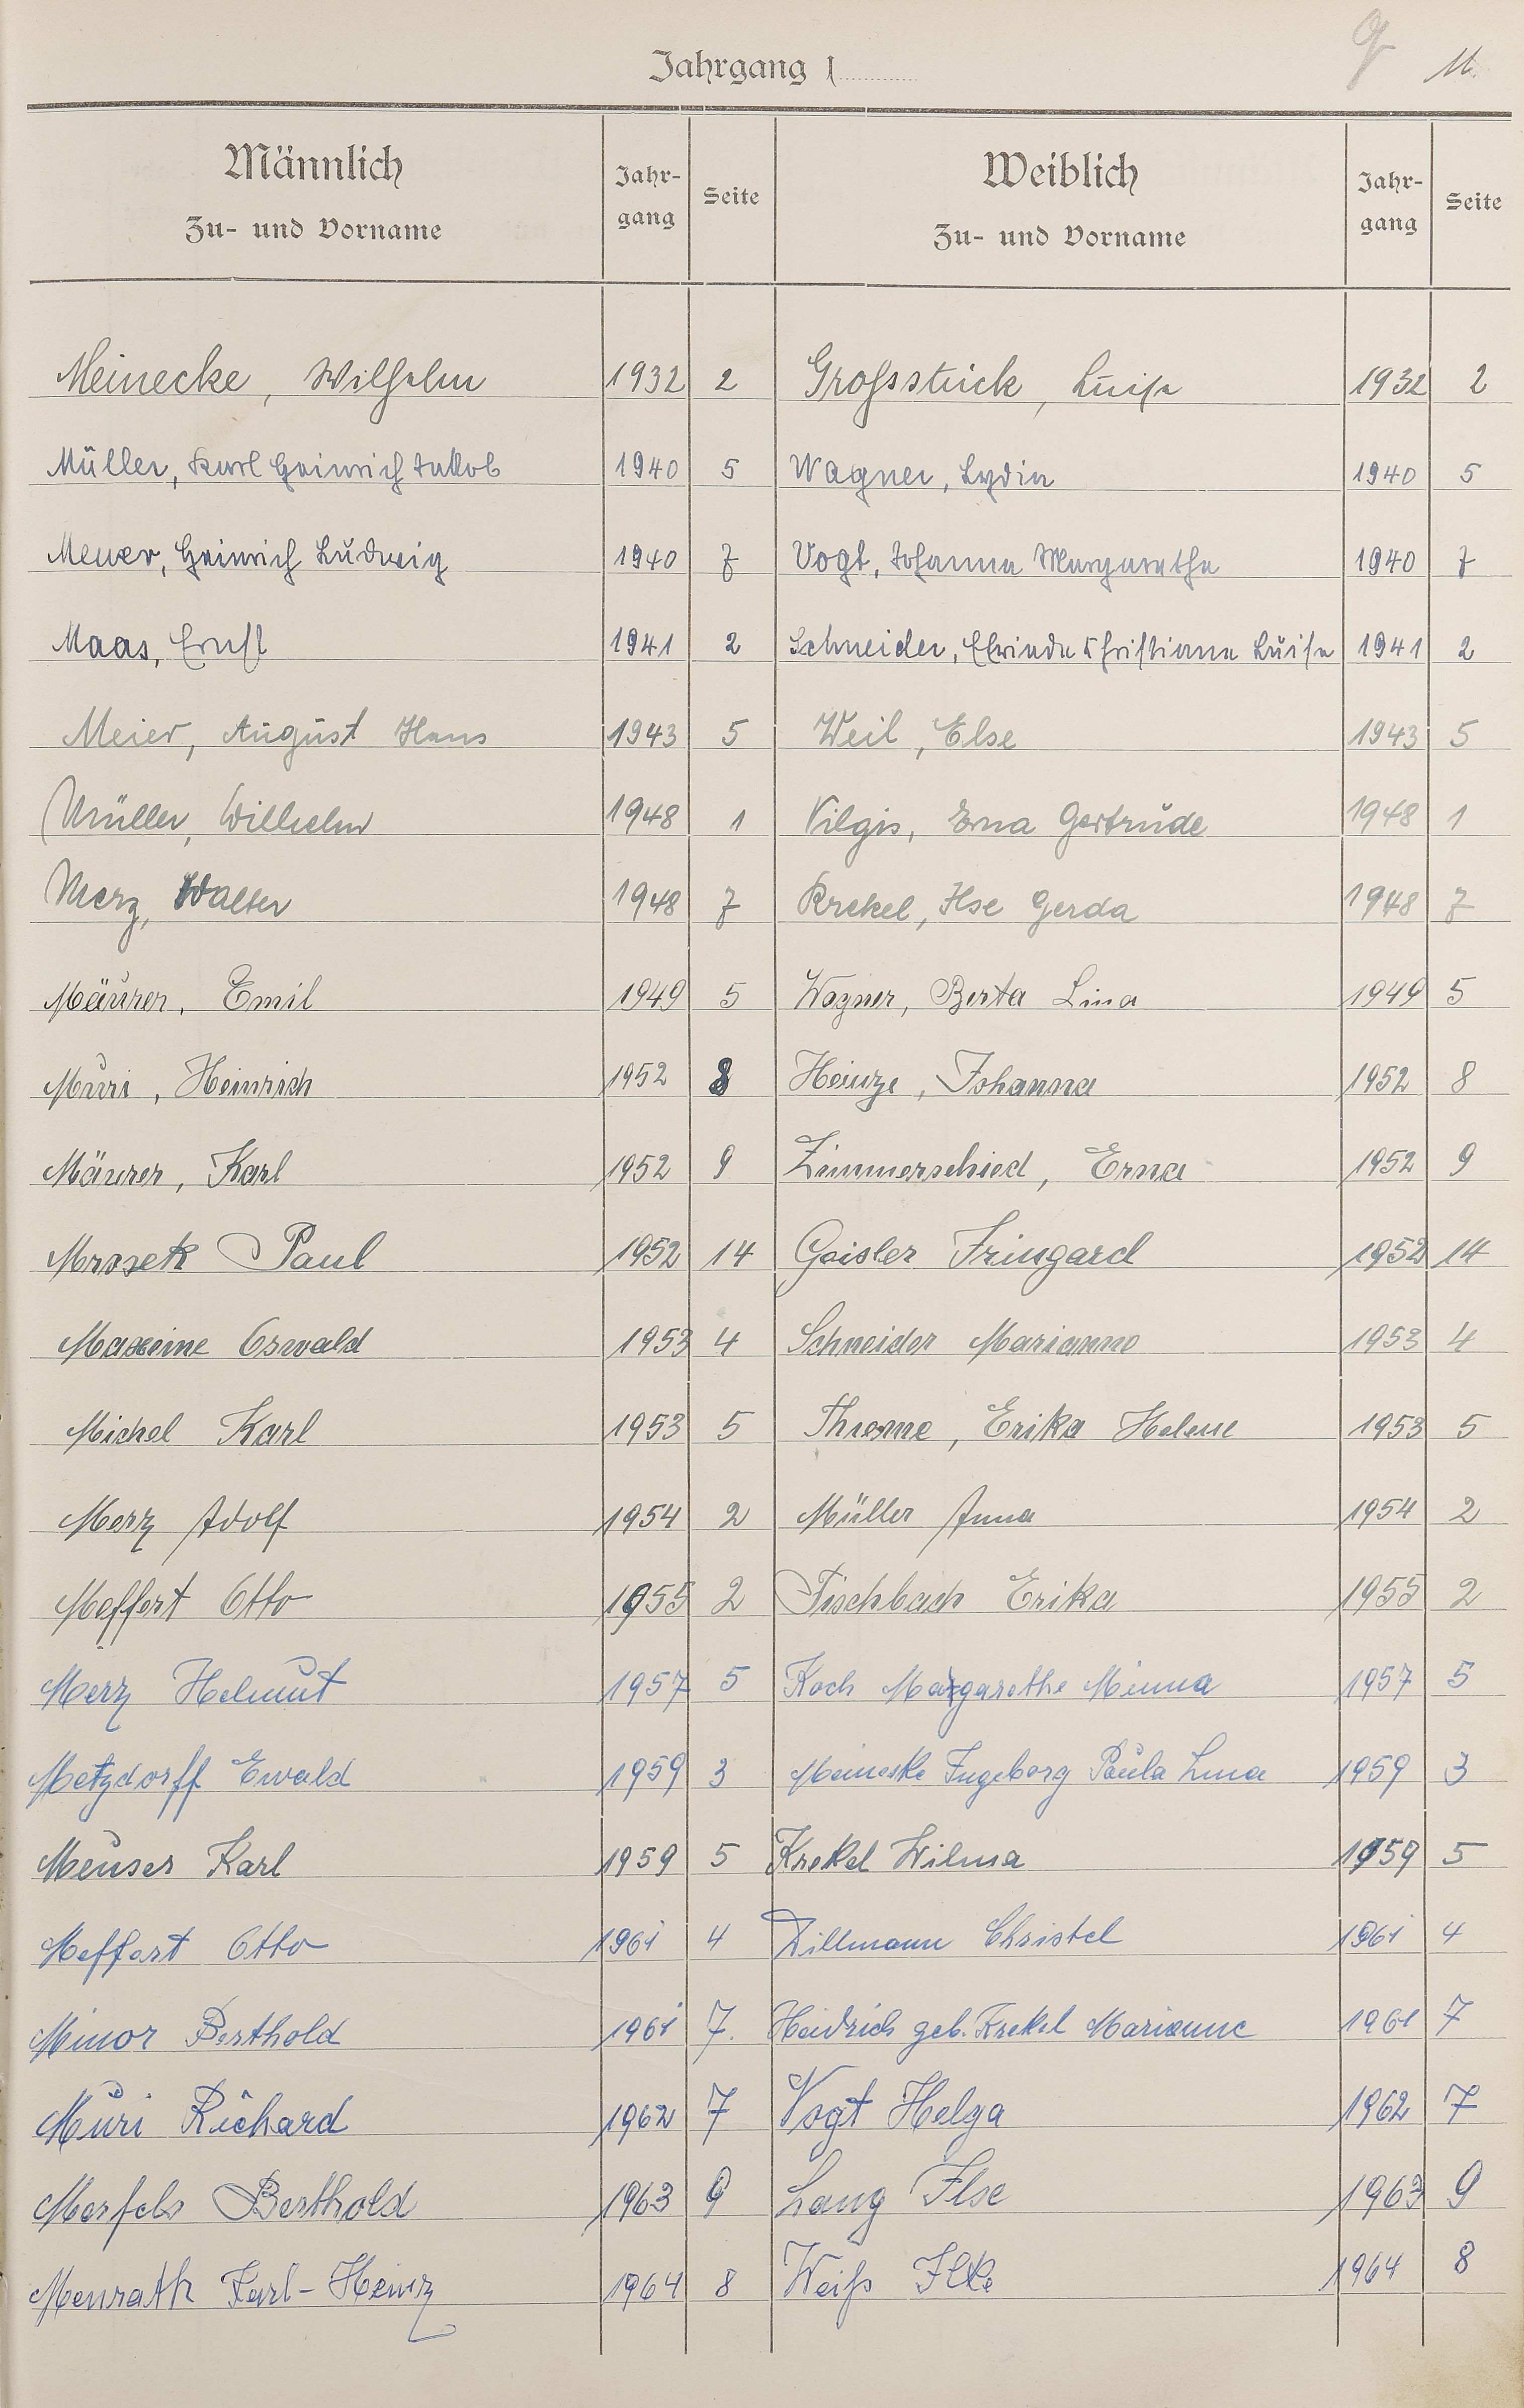 Jahrgang 1
M.
Männlich
Zu- und Vorname
Jahr-
gang
Seite
Weiblich
Zu- und Vorname
Jahr-
gang
Seite
Meinecke, Wilhelm 1932 2 Grossstück, Luise 1932 2
Müller, Karl Heinrich Jakob 1940 5 Wagner, Lydia 1940 5
Meuer, Heinrich Ludwig 1940 7 Vogt, Johanna Margarethe 1940 7
Maas, Ernst 1941 2 Schneider, Elrinde Christiane Luise 1941 2
Meier, August Hans 1943 5 Weil, Else 1943 5
Müller, Wilhelm 1948 1 Vilgis, Erna Gertrude 1948 1
Merz, Walter 1948 7 Krekel, Ilse Gerda 1948 7
Mäurer, Emil 1949 5 Wagner, Berta Lina 1949 5
Muri, Heinrich 1952 8 Heinze, Johanna 1952 8
Mäurer, Karl 1952 9 Zimmerschied, Erna 1952 9
Mrosek Paul 1952 14 Geisler Irmgard 1952 14
Maxeine Oswald 1953 4 Schneider Marianne 1953 4
Michel Karl 1953 5 Thieme, Erika Helene 1953 5
Merz Adolf 1954 2 Müller Anna 1954 2
Meffert Otto 1955 2 Fischbach Erika 1955 2
Merz Helmut 1957 5 Koch Margarethe Minna 1957 5
Metzdorff Ewald 1959 3 Meineske Ingeborg Paula Lina 1959 3
Meuser Karl 1959 5 Krekel Wilma 1959 5
Meffert Otto 1961 4 Dillmann Christel 1961 4
Minor Berthold 1961 7. Heidrich geb. Krekel Marianne 1961 7
Muri Richard 1962 7 Vogt Helga 1962 7
Merfels Berthold 1963 9 Lang Ilse 1963 9
Menrath Karl-Heinz 1964 8 Weiß Ilke 1964 8